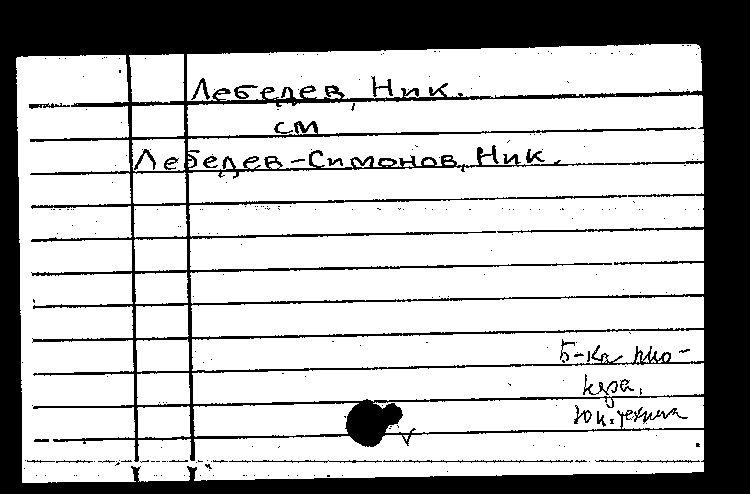 Лебедев, Ник.
см
Лебедев-Симонов, Ник.
Б-ка пио-
нера.
Юн. техник